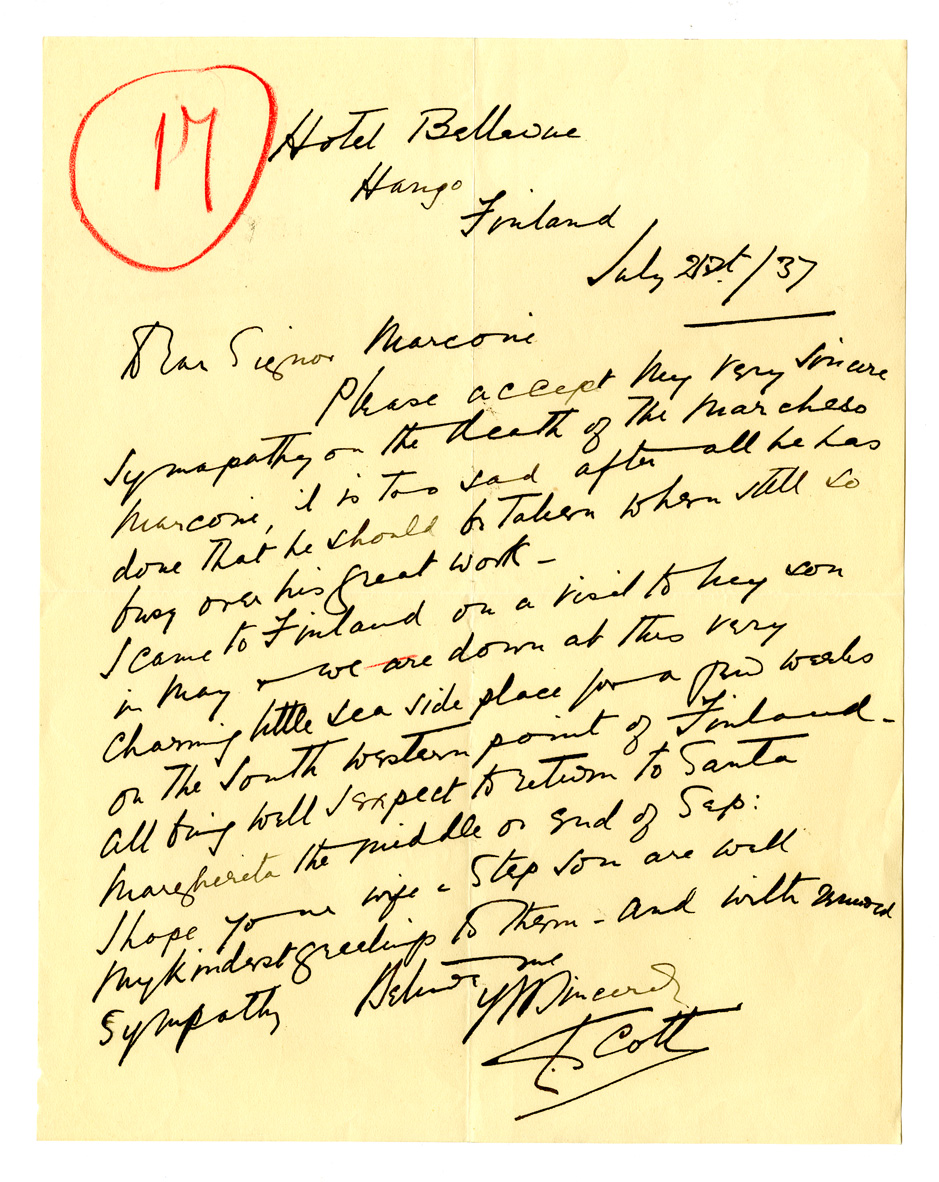 17
Hotel Bellevue
Hango
Finland
July 21st./37
Dear Signor Marconi
Please accept my very sincere
sympathy on the death of the Marchese
Marconi, it is too sad after all he has
done that he should be taken when still so
busy over his great work -
I came to Finland on a visit to my son
in May & we are down at this very
charming little sea side place for a few weeks
on the South western point of Finland -
all being well I expect to return to Santa
Margherita the middle or end of Sep:
I hope your wife & Step son are well
my kindest greetings to them - and with renewed
sympathy Believe me
Yrs Sincerely
Scott